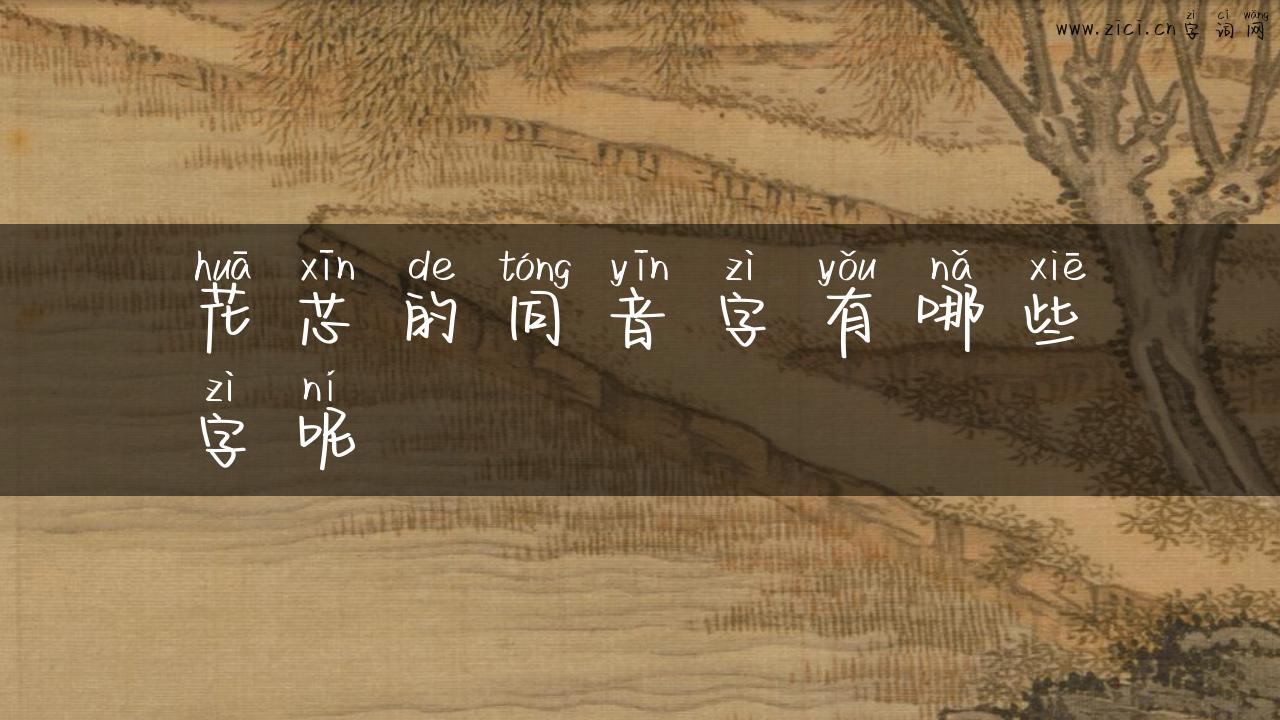 zì cí wǎng
www.zici.cn 字 词 网
huā xīn de tóng yīn zì yǒu nǎ xiē
花 芯 的 同 音 字 有 哪 些
zì ní
字 呢